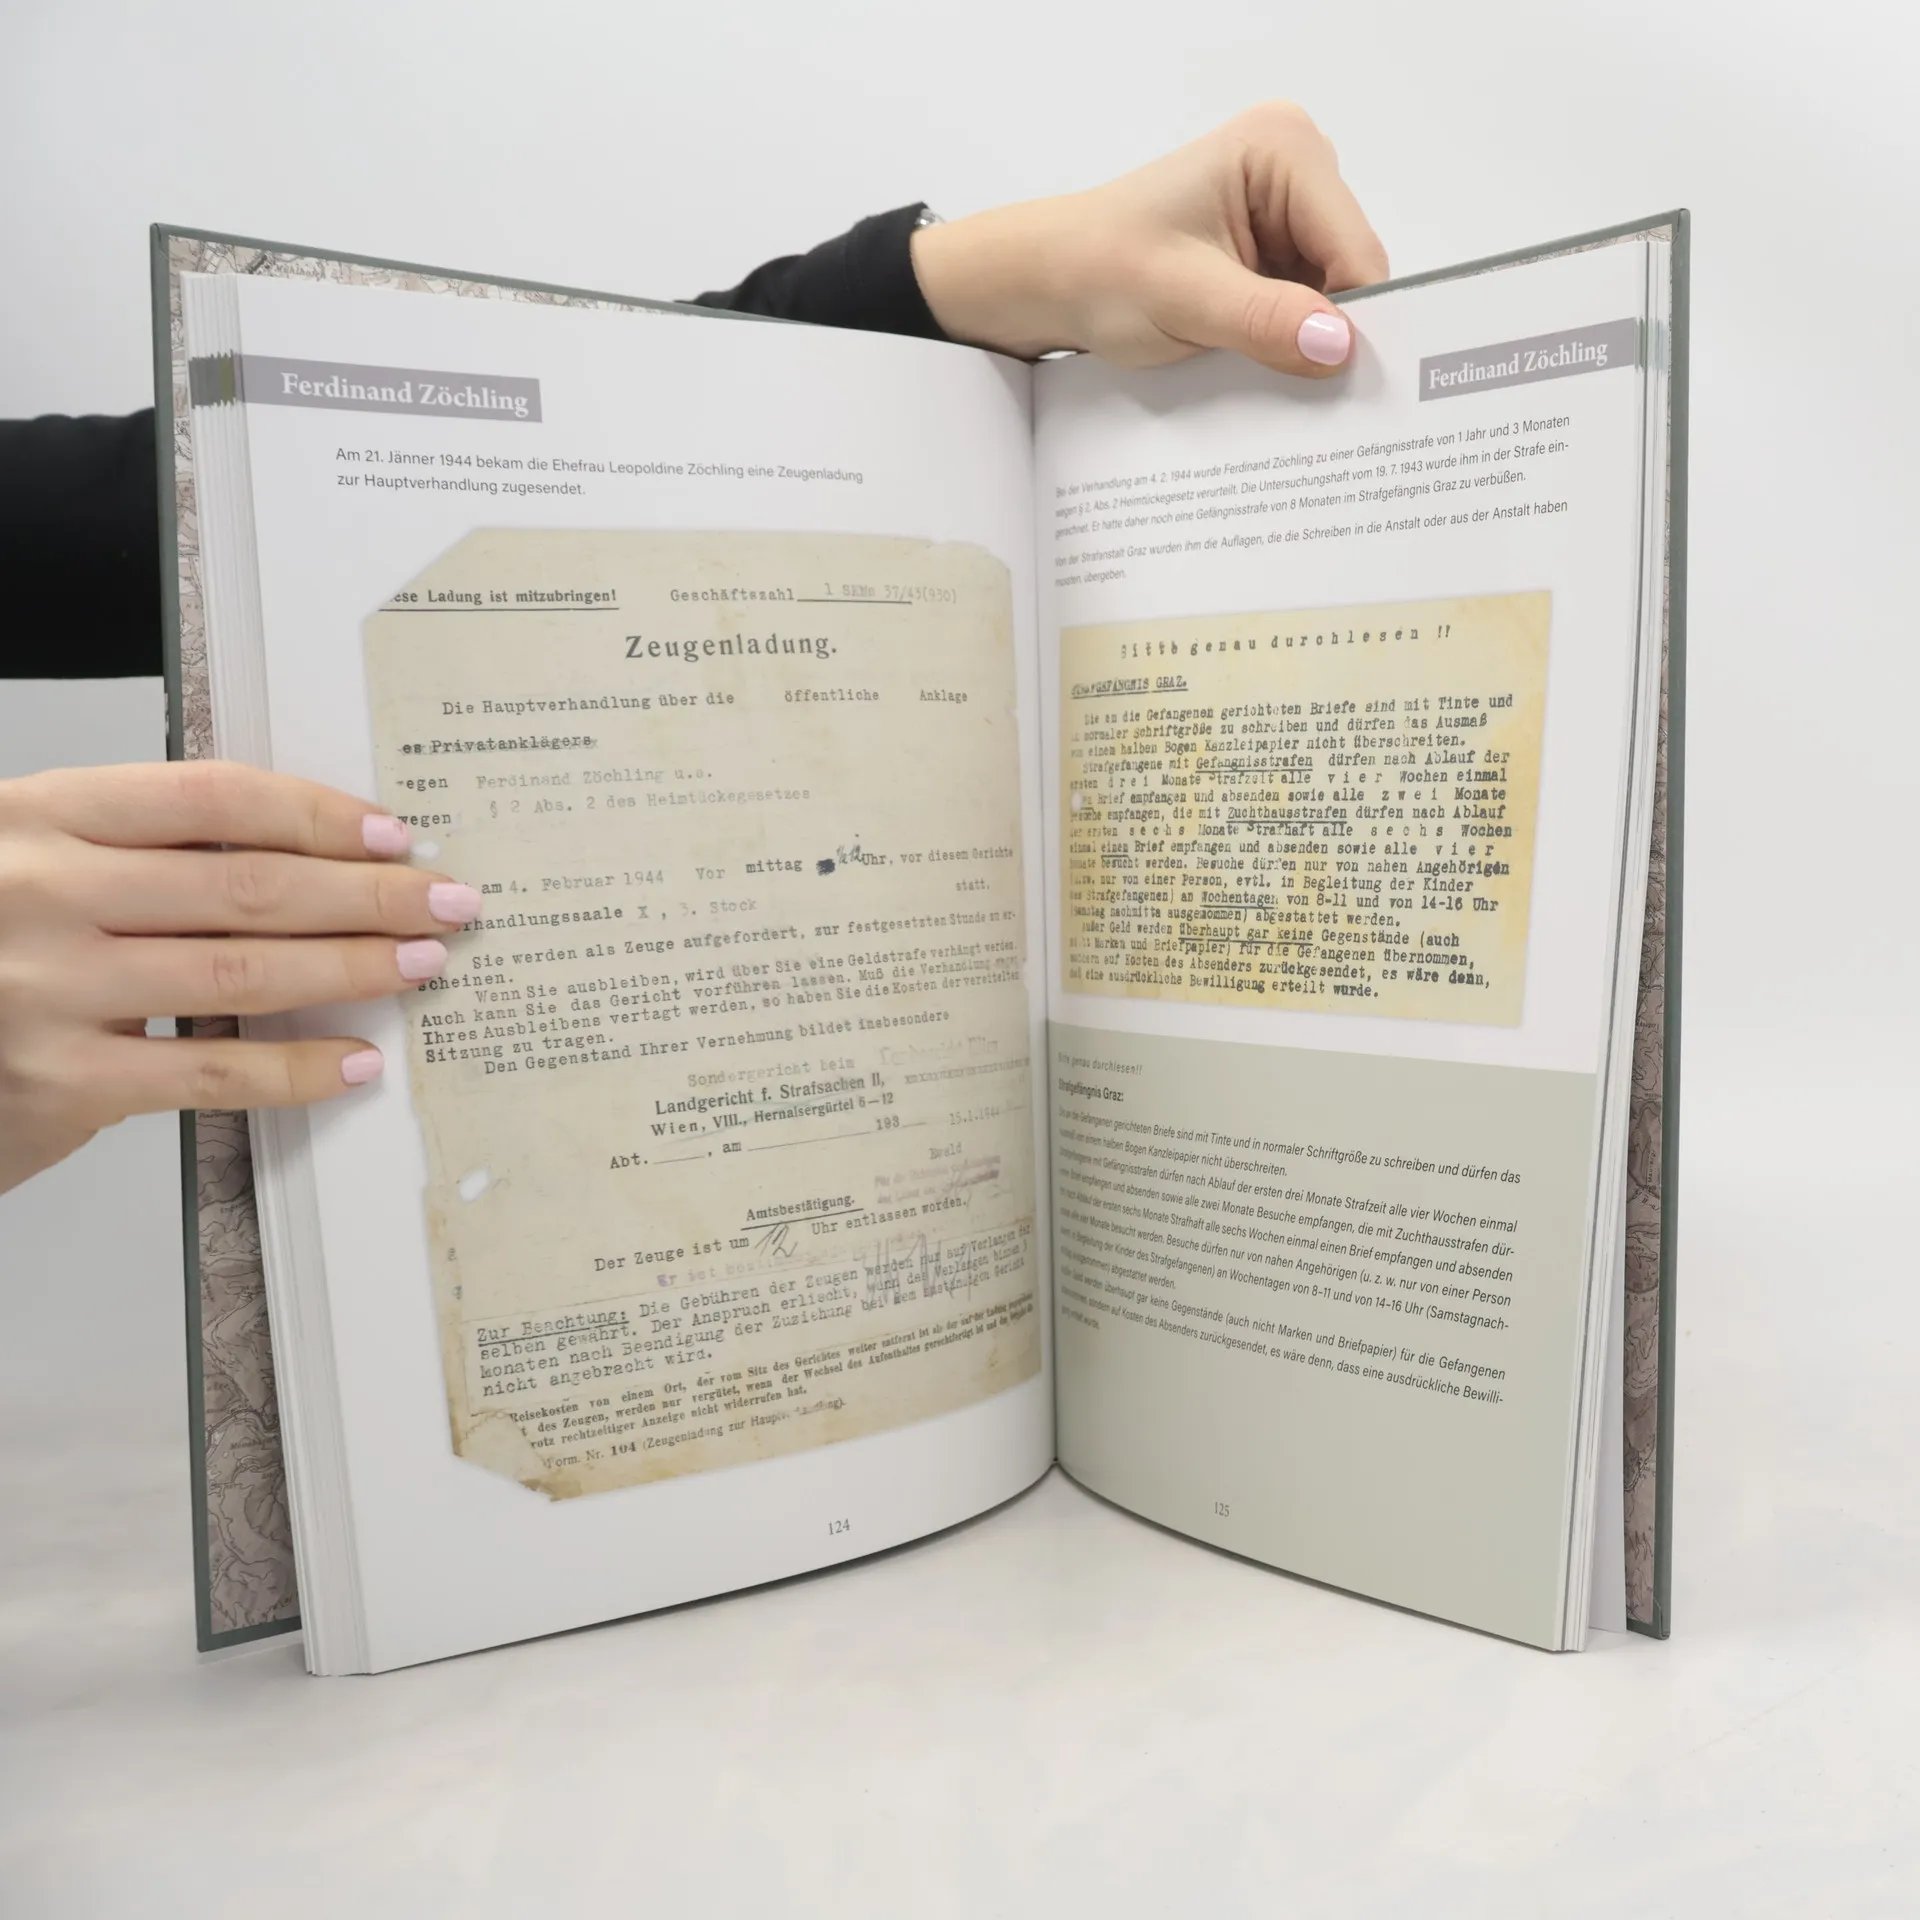 Ferdinand Zöchling
Am 21. Jänner 1944 bekam die Ehefrau Leopoldine Zöchling eine Zeugenladung
zur Hauptverhandlung zugesendet.
ese Ladung ist mitzubringen! Geschäftszahl 1 SKMs 37/43(930)
Zeugenladung.
Die Hauptverhandlung über die öffentliche Anklage
es Privatanklägers
egen Ferdinand Zöchling u.a.
wegen § 2 Abs. 2 des Heimtückegesetzes
am 4. Februar 1944 Vor mittag Uhr, vor diesem Gerichte
statt.
rhandlungssaale X, 3. Stock
Sie werden als Zeuge aufgefordert, zur festgesetzten Stunde zu er-
scheinen.
Wenn Sie ausbleiben, wird über Sie eine Geldstrafe verhängt werden.
Auch kann Sie das Gericht vorführen lassen. Muß die Verhandlung wegen
Ihres Ausbleibens vertagt werden, so haben Sie die Kosten der vereitelten
Sitzung zu tragen.
Den Gegenstand Ihrer Vernehmung bildet insbesondere
Sondergericht beim
Landgericht f. Strafsachen II,
Wien, VIII., Hernalsergürtel 6–12
Abt. , am 193 15.1.1944
Amtsbestätigung.
Der Zeuge ist um 12 Uhr entlassen worden.
Er ist
Zur Beachtung: Die Gebühren der Zeugen werden nur auf Verlangen der
selben gewährt. Der Anspruch erlischt, wenn das Verlangen binnen 3
Monaten nach Beendigung der Zuziehung bei dem zuständigen Gericht
nicht angebracht wird.
Reisekosten von einem Ort, der vom Sitz des Gerichtes weiter entfernt ist als der auf der Ladung
t des Zeugen, werden nur vergütet, wenn der Wechsel des Aufenthaltes gerechtfertigt ist und der
rotz rechtzeitiger Anzeige nicht widerrufen hat.
Form. Nr. 104 (Zeugenladung zur Hauptverhandlung).
124
Ferdinand Zöchling
Bei der Verhandlung am 4. 2. 1944 wurde Ferdinand Zöchling zu einer Gefängnisstrafe von 1 Jahr und 3 Monaten
wegen § 2, Abs. 2 Heimtückegesetz verurteilt. Die Untersuchungshaft vom 19. 7. 1943 wurde ihm in der Strafe ein-
gerechnet. Er hatte daher noch eine Gefängnisstrafe von 8 Monaten im Strafgefängnis Graz zu verbüßen.
Von der Strafanstalt Graz wurden ihm die Auflagen, die die Schreiben in die Anstalt oder aus der Anstalt haben
mussten, übergeben.
Bitte genau durchlesen !!
GEFÄNGNIS GRAZ.
Die an die Gefangenen gerichteten Briefe sind mit Tinte und
in normaler Schriftgröße zu schreiben und dürfen das Ausmaß
von einem halben Bogen Kanzleipapier nicht überschreiten.
Strafgefangene mit Gefängnisstrafen dürfen nach Ablauf der
ersten drei Monate Strafzeit alle vier Wochen einmal
Brief empfangen und absenden sowie alle zwei Monate
Besuche empfangen, die mit Zuchthausstrafen dürfen nach Ablauf
der ersten sechs Monate Strafhaft alle sechs Wochen
einmal einen Brief empfangen und absenden sowie alle vier
Monate besucht werden. Besuche dürfen nur von nahen Angehörigen
nur von einer Person, evtl. in Begleitung der Kinder
des Strafgefangenen) an Wochentagen von 8-11 und von 14-16 Uhr
(Samstag nachmitta ausgenommen) abgestattet werden.
Außer Geld werden überhaupt gar keine Gegenstände (auch
nicht Marken und Briefpapier) für die Gefangenen übernommen,
sondern auf Kosten des Absenders zurückgesendet, es wäre denn,
daß eine ausdrückliche Bewilligung erteilt wurde.
Bitte genau durchlesen!!
Strafgefängnis Graz:
Die an die Gefangenen gerichteten Briefe sind mit Tinte und in normaler Schriftgröße zu schreiben und dürfen das
Ausmaß von einem halben Bogen Kanzleipapier nicht überschreiten.
Strafgefangene mit Gefängnisstrafen dürfen nach Ablauf der ersten drei Monate Strafzeit alle vier Wochen einmal
einen Brief empfangen und absenden sowie alle zwei Monate Besuche empfangen, die mit Zuchthausstrafen dür-
fen nach Ablauf der ersten sechs Monate Strafhaft alle sechs Wochen einmal einen Brief empfangen und absenden
sowie alle vier Monate besucht werden. Besuche dürfen nur von nahen Angehörigen (u. z. w. nur von einer Person
in Begleitung der Kinder des Strafgefangenen) an Wochentagen von 8–11 und von 14–16 Uhr (Samstagnach-
mittag ausgenommen) abgestattet werden.
Außer Geld werden überhaupt gar keine Gegenstände (auch nicht Marken und Briefpapier) für die Gefangenen
übernommen, sondern auf Kosten des Absenders zurückgesendet, es wäre denn, dass eine ausdrückliche Bewilli-
gung erteilt wurde.
125